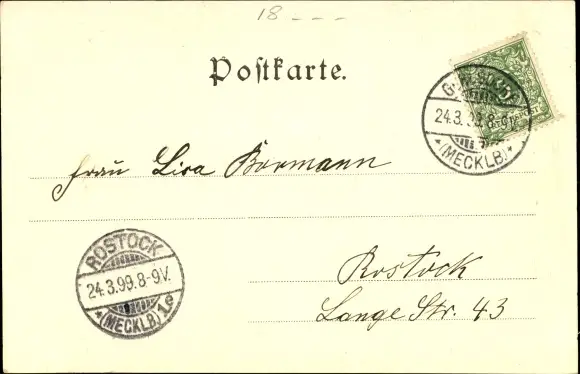 18 - - -
Postkarte.
24.3.99.8-9V.
(MECKLB)
Frau Lisa Bormann
ROSTOCK
24.3.99.8-9V.
(MECKLB) 1.e
Rostock
Lange Str. 43